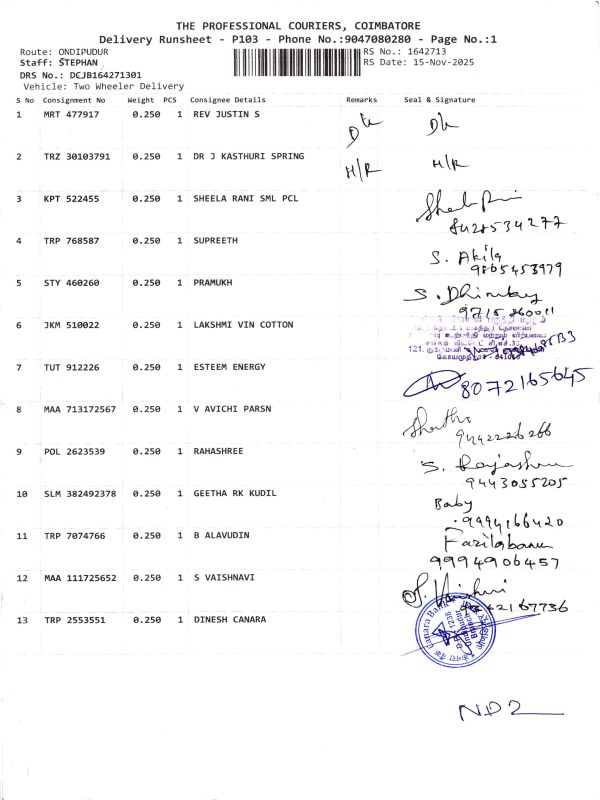 THE PROFESSIONAL COURIERS, COIMBATORE
Delivery Runsheet - P103 - Phone No.:9047080280 - Page No.:1
Route: ONDIPUDUR RS No.: 1642713
Staff: STEPHAN RS Date: 15-Nov-2025
DRS No.: DCJB164271301
Vehicle: Two Wheeler Delivery
S No Consignment No Weight PCS Consignee Details Remarks Seal & Signature
1 MRT 477917 0.250 1 REV JUSTIN S
2 TRZ 30103791 0.250 1 DR J KASTHURI SPRING H/R H/R
3 KPT 522455 0.250 1 SHEELA RANI SML PCL
8428534277
4 TRP 768587 0.250 1 SUPREETH S. Akila
9865453979
5 STY 460260 0.250 1 PRAMUKH
6 JKM 510022 0.250 1 LAKSHMI VIN COTTON
7 TUT 912226 0.250 1 ESTEEM ENERGY
8072165645
8 MAA 713172567 0.250 1 V AVICHI PARSN
9442226266
9 POL 2623539 0.250 1 RAHASHREE
9443055205
10 SLM 382492378 0.250 1 GEETHA RK KUDIL Baby
9994166420
11 TRP 7074766 0.250 1 B ALAVUDIN Fazilabanu
9994906457
12 MAA 111725652 0.250 1 S VAISHNAVI
13 TRP 2553551 0.250 1 DINESH CANARA Canara Bank